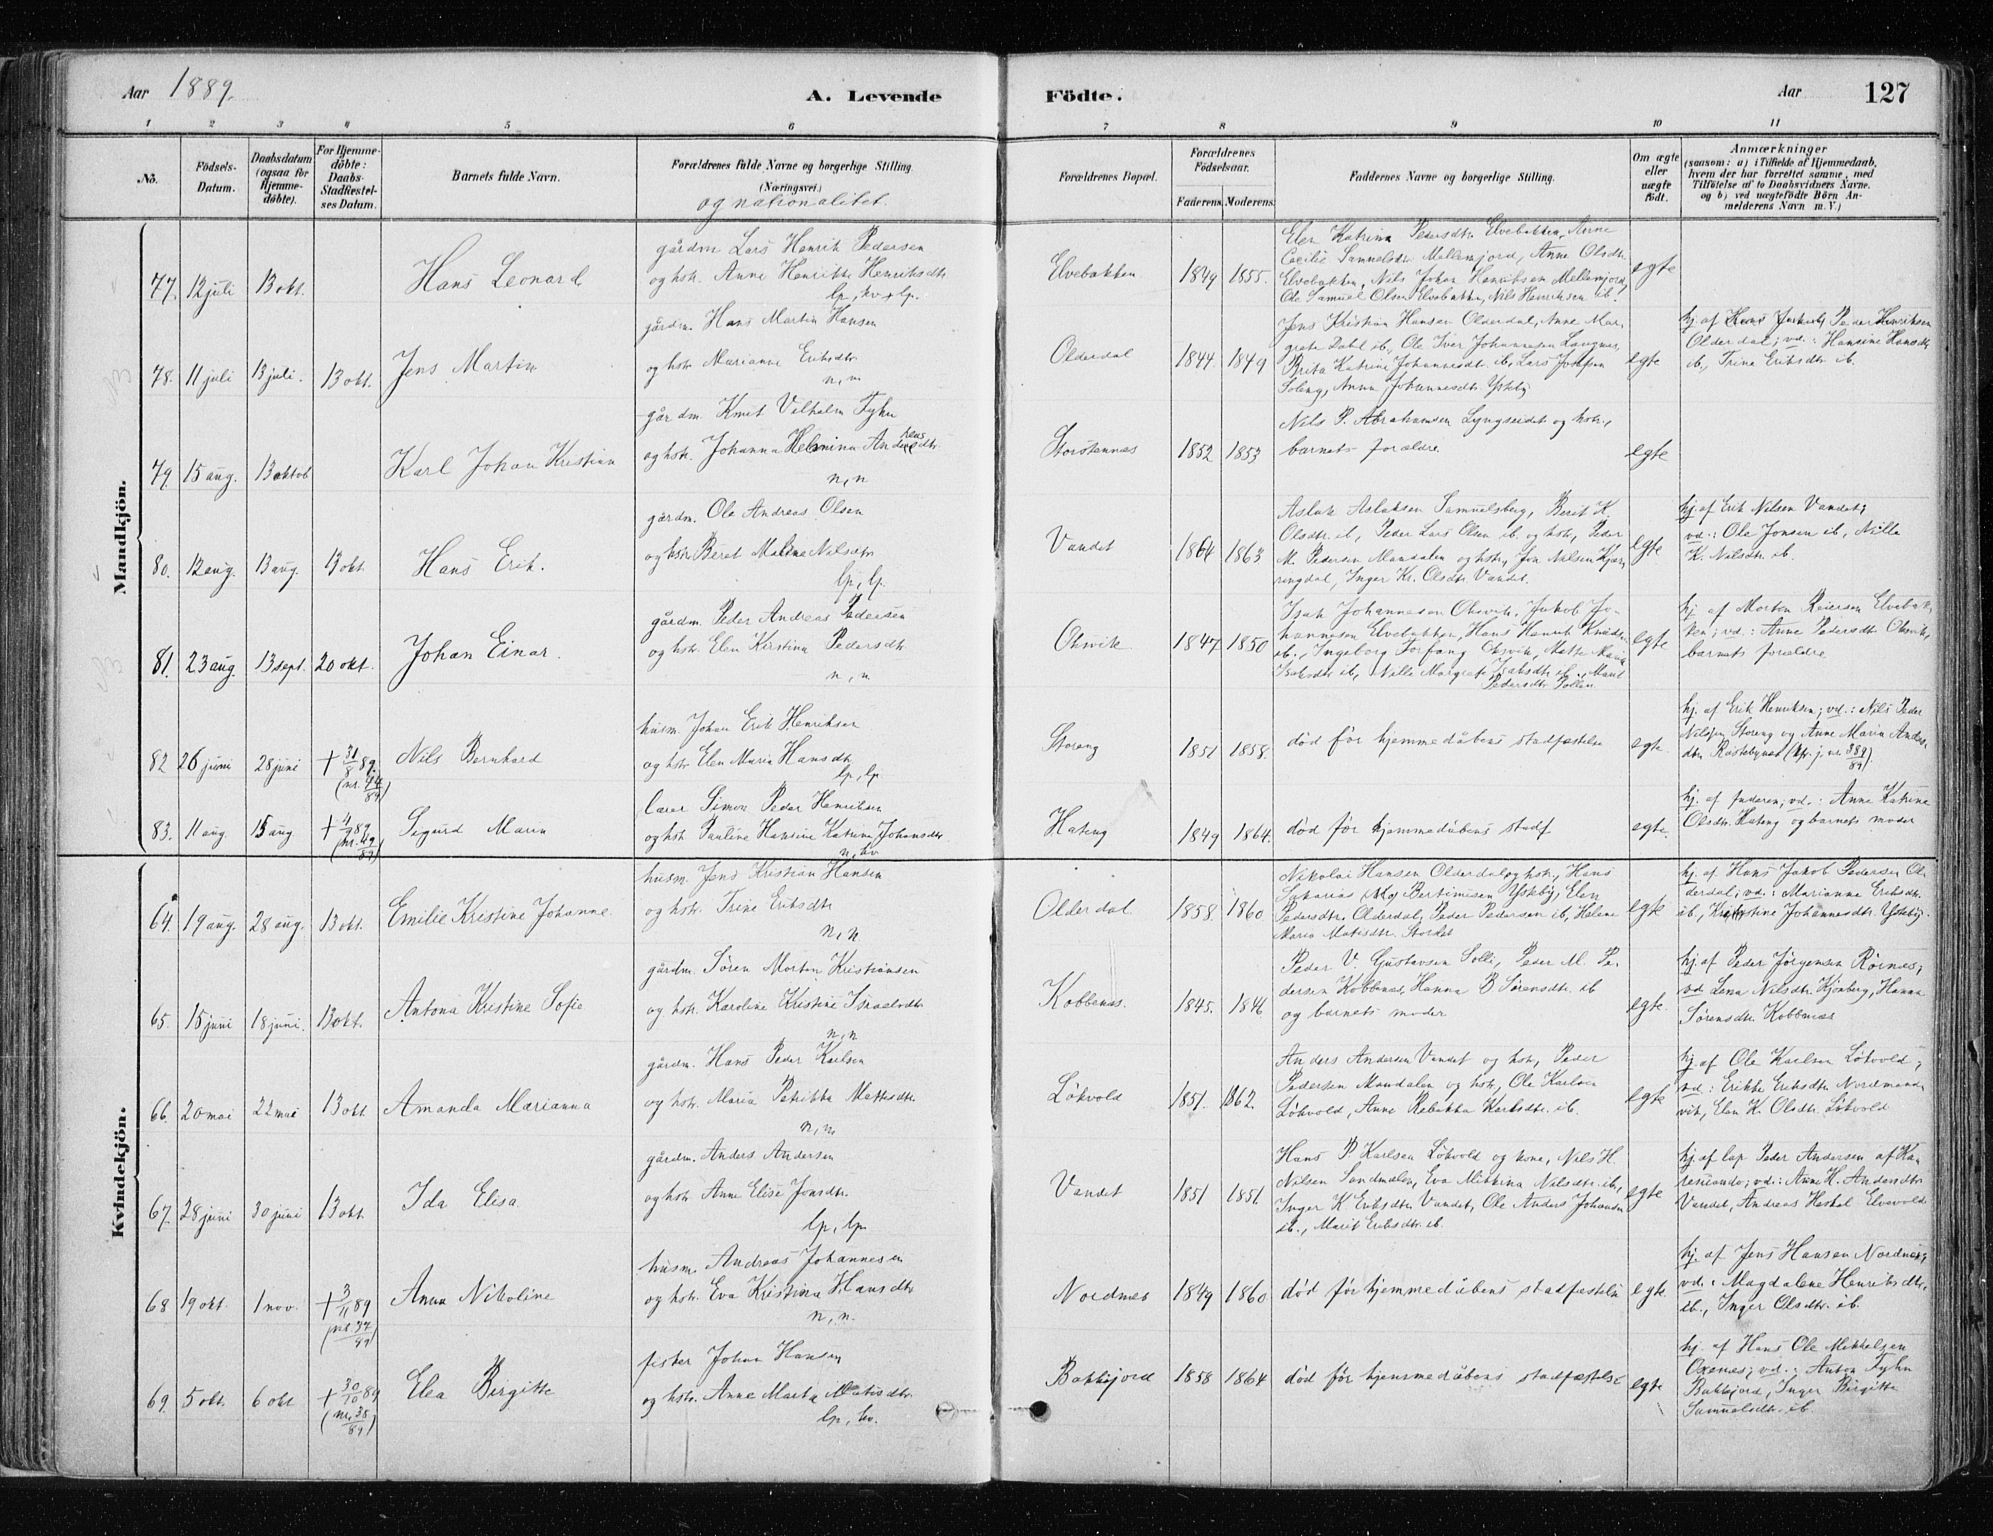 Aar 1889.
A. Levende Födte.
Aar 127
1 2 3 4 5 6 7 8 9 10 11
No.
Födsels-Datum.
Daabsdatum (ogsaa for Hjemme-döbte).
For Hjemme-döbte: Daabs-Stadfæstel-ses Datum.
Barnets fulde Navn.
Forældrenes fulde Navne og borgerlige Stilling.
(Næringsvei.)
og nationalitet.
Forældrenes Bopæl.
Forældrenes Födselsaar.
Faderens. Moderens.
Faddernes Navne og borgerlige Stilling.
Om ægte eller uægte födt.
Anmærkninger
(saasom: a) i Tilfælde af Hjemmedaab,
hvem der har forrettet samme, med
Tilföielse af to Daabsvidners Navne.
og b) ved uægtefödte Börn An-
melderens Navn m. V.)
Mandkjön.
77. 12 juli 13 okt. Hans Leonard
gårdm Lars Henrik Pedersen
og hst. Anne Henrikke Henriksdtr
lp, kv, lp.
Elvebakken 1849 1855.
Elen Katrina Pedersdtr. Elvebakken, Anne
Cecilie Samuelsdtr. Mellemjord, Anne Olsdtr.
Elvebakken, Nils Johan Henriksen Mellemjord,
Ole Samuel Olsen Elvebakken, Nils Henriksen ib.
egte
78. 11 juli 13 juli. 13 okt. Jens Martin
gårdm. Hans Martin Hansen
og hst. Marianne Eriksdtr.
n, n
Olderdal 1844 1849
Jens Kristian Hansen Olderdal, Anne Mar-
grete Dahl ib, Ole Iver Johannesen Langnes,
Brita Katrine Johannesdtr. ib, Lars Josefsen
Soleng, Anna Johannesdtr. Ytreby
egte
hj. af Hans Jakob Peder Henriksen
Olderdal; vd.: Hansine Hansdtr
ib., Trine Eriksdtr ib.
79. 15 aug. 13 oktob Karl Johan Kristian
gårdm. Knut Vilhelm Fyhn
og hst. Johanna Helmina Andreasdtr.
n, n
Storstennæs 1852 1853
Nils P. Abrahamsen Lyngseidet og hstr.,
barnets forældre
egte
80. 12 aug. 13 aug. 13 okt. Hans Erik.
gårdm. Ole Andreas Olsen
og hst. Beret Maline Nilsdtr
lp, lp.
Vandet 1864 1863
Aslak Aslaksen Samuelsberg, Berit K.
Olsdtr. ib, Peder Lars Olsen ib og hst, Peder
M. Pedersen Mandalen og hst, Jon Nilsen Kjær-
ringdal, Inger Kr. Olsdtr. Vandet.
egte
hj. af Erik Nilsen Vandet;
vd.: Ole Jonsen ib, Nilla
K. Nilsdtr. ib.
81. 23 aug. 13 sept. 20 okt. Johan Einar.
gårdm. Peder Andreas Pedersen
og hst. Elen Kirstina Pedersdtr.
n, n
Oksvik 1847 1850
Isak Johannesen Oksvik, Jakob Jo-
hannesen Elvebakken, Hans Henrik Knudsen
ib., Ingeborg Torfang Oksvik, Mette Maria
Isaksdtr ib, Nille Margrete Isaksdtr ib., Marit
Pedersdtr. Pollen
egte
hj. af Morten Reiersen Elvebak-
ken; vd.: Anne Pedersdtr Oksvik,
barnets forældre
82 26 juni 28 juni + 31/8 89. (nr. 44/89) Nils Bernhard
husm. Johan Erik Henriksen
og hst. Elen Maria Hansdtr
lp, lp
Storeng 1851 1858.
død før hjemmedåbens stadfæstelse
egte.
hj. af Erik Henriksen; vd.: Nils Peder
Nilsen Storeng og Anne Maria Anders-
dtr. Rastebynes (kfr. j. nr 388/89).
83. 11 aug. 15 aug + 4/9 89 (nr. 49/89) Sigurd Marin
lærer Simon Peder Henriksen
og hst Pauline Hansine Katrine Johansdtr.
n, kv
Hateng 1849 1864.
død før hjemmedåbens stadf
egte.
hj. af faderen; vd.: Anne Katrine
Olsdtr. Hateng og barnets moder
Kvindekjön.
64. 19 aug. 28 aug. 13 okt. Emilie Kristine Johanne
husm. Jens Kristian Hansen
og hst. Trine Eriksdtr
n, n
Olderdal. 1858. 1860
Nikolai Hansen Olderdal og hst, Hans
Sakarias Bertinusen Ytreby, Elen
Pedersdtr. Olderdal, Peder Pedersen ib, Helene
Maria Matisdtr. Stordal
egte
hj. af Hans Jakob Pedersen Ol-
derdal; vd.: Marianne Eriksdtr
ib., Kristine Johannesdtr. Ytreby.
65. 15 juni 18 juni. 13 okt. Antona Kristine Sofie
gårdm. Søren Morten Kristiansen
og hst. Karoline Kristine Israelsdtr.
n, n
Kobbenæs. 1845. 1846
Peder V Gustavsen Solli, Peder M. Pe-
dersen Kobbenæs, Hanna B Sørensdtr. ib
og barnets moder
egte.
hj. af Peder Jørgensen Rørnæs;
vd Lena Nilsdtr. Kjønberg, Hanna
Sørensdtr. Kobbenæs
66. 20 mai 22 mai 13 okt Amanda Marianna
gårdm. Hans Peder Karlsen
og hst. Maria Petrikka Mattisdtr.
n, n
Løkvold 1851. 1862.
Anders Andersen Vandet og hst, Peder
Pedersen Mandalen og hst, Ole Karlsen
Løkvold, Anne Rebekka Karlsdtr. ib.
egte
hj. af Ole Karlsen Løkvold;
vd: Erikke Eriksdtr. Nordmand-
vik, Elen K. Olsdtr. Løkvold
67. 28 juni 30 juni 13 okt. Ida Elisa
gårdm. Anders Andersen
og hst. Anne Elise Jonsdtr.
lp, lp.
Vandet 1851 1851
Hans P Karlsen Løkvold og kone, Nils H.
Nilsen Sandmælen, Eva Mikkina Nilsdtr. ib.,
Inger K Eriksdtr. Vandet, Ole Anders Johansen
ib., Marit Eriksdtr. ib.
egte
hj. af lap. Peder Andersen af Ka-
resuando; vd.: Anne K. Andersdtr
Vandet, Andreas Heskel Elvevold
68 19 okt. 1 nov. + 3/11 89 (nr. 37/89) Anna Nikoline
husm. Andreas Johannesen
og hst. Eva Kristina Hansdtr
n, n.
Nordnes 1849 1860
død før hjemmedåbens stadfæstelse
egte.
hj. af Jens Hansen Nordnes;
vd.: Magdalene Henriksdtr.
ib., Inger Olsdtr. ib.
69. 5 okt. 6 okt + 30/10 89 (nr. 38/89) Elea Birgitte
fisker Johan Hansen
og hst. Anne Marta Matisdtr.
lp, kv.
Bakkejord 1858 1864
død før hjemmedåbens stadfæstelse
egte
hj. af Hans Ole Mikkelsen
Oxenes; vd.: Anton Fyhn
Bakkejord, Inger Birgitte
Samuelsdtr. ib.